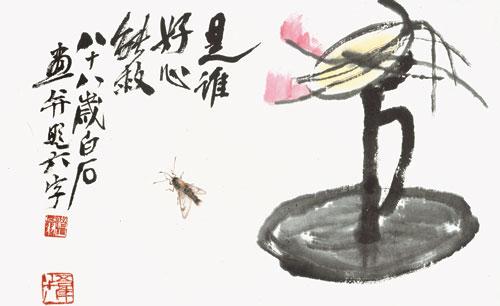 是誰
好心
能救
八十八歲白石
畫并題六字